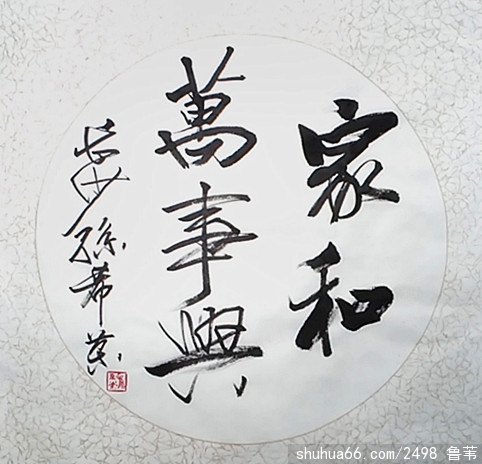 家和
萬事興
長沙孫希
shuhua66.com/2498 鲁苇